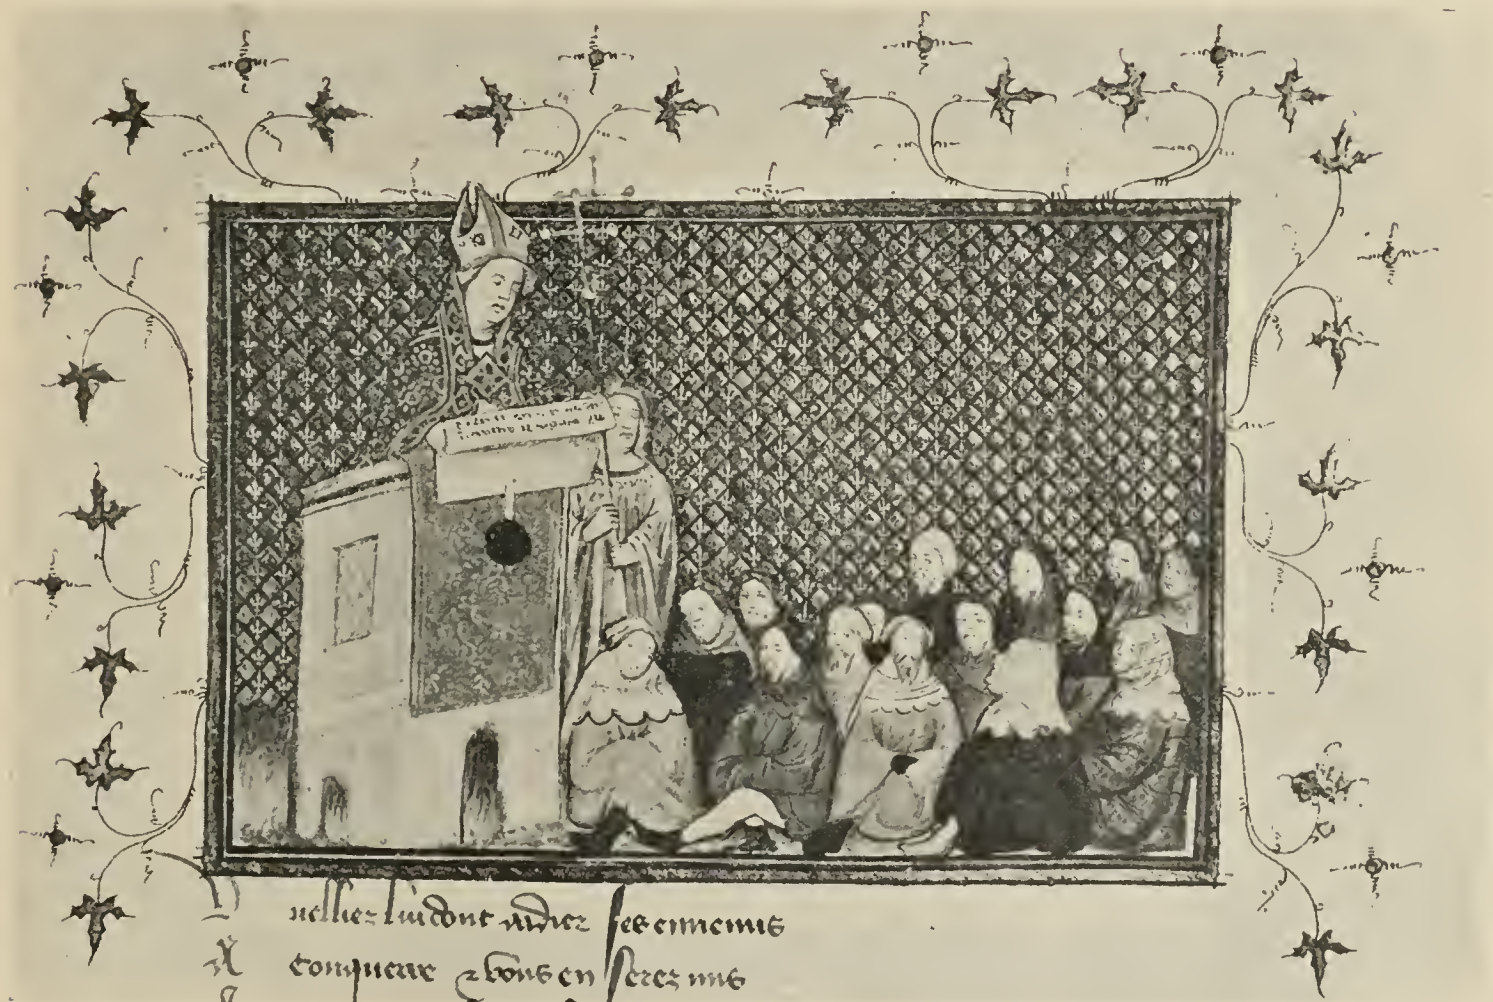 V uelliez lui dont aidier ses ennemis
A conquerre ⁊ vous en serez mis